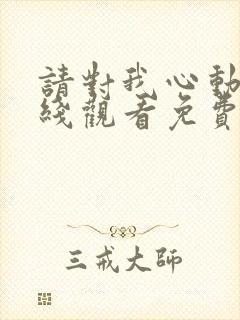 請對我心動
綫觀看免費
三戒大師